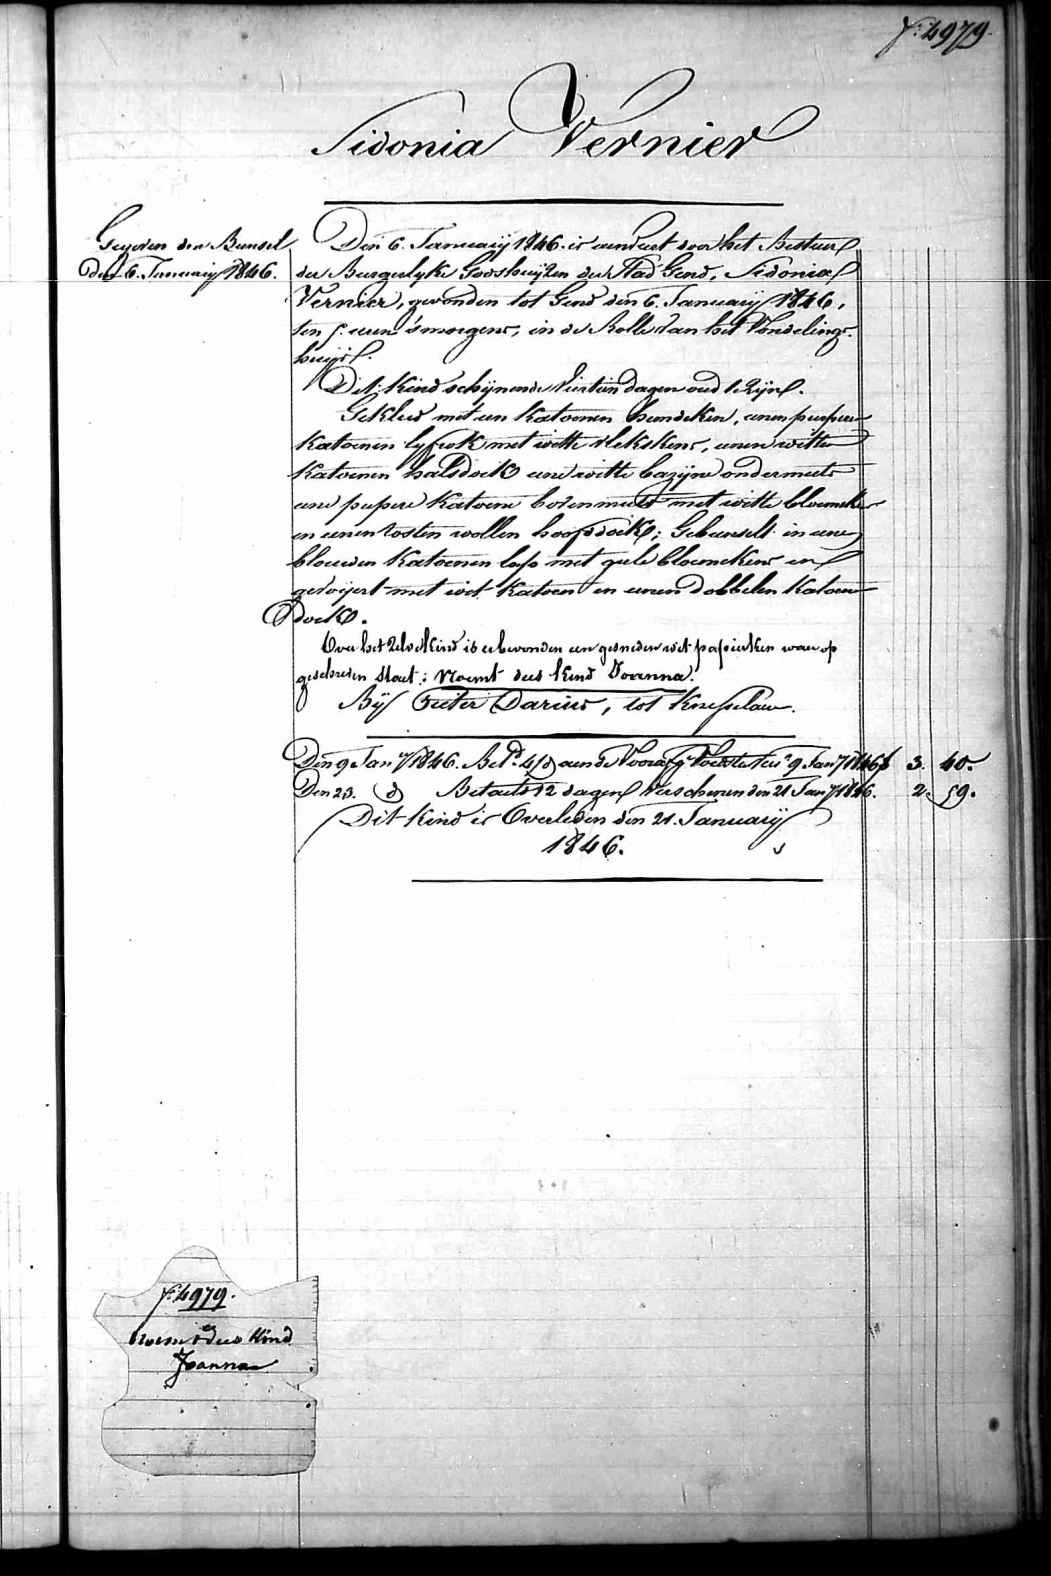 f: 4979.
Sidonia Vernier
Gegeven den Bunsel
den 6. January 1846.
Den 6. January 1846. is aenveert door het Bestuer
der Burgerlyke Godshuijzen der Stad Gend, Sidonia
Vernier, gevonden tot Gend den 6. January 1846,
ten 5. uren 's morgens, in de Rolle van het Vondelings-
huijs.
Dit kind schijnende Viertien dagen oud te zijn.
Gekleed met een katoenen hemdeken, eenen purpere
katoenen lyfrok met witte vlekskens, eenen witten
katoenen halsdoek eene witte bazijne ondermuts
eene pupere katoene bovenmuts met witte bloemekens
en eenen rosten wollen hoofddoek; Gebunselt in eene
blauwen katoenen lap met gele bloemekens en
gevoijert met wit katoen en eenen dobbelen katoen
doek.
Over het zelve kind is er bevonden een gesneden wit papierken waer op
geschreven staet: Noemt dees kind Joanna.
Bij Pieter Darius, tot Knesselaere.
Den 9 Jany 1846. Betd. 4/d aen de Voedster 9 Jany 1846 f 3. 40.
Den 23. d Betaelt 12 dagen Verschenen den 21 Jany 1846. 2. 59.
Dit kind is Overleden den 21. January
1846.
f: 4979.
noemt dees kind
Joanna